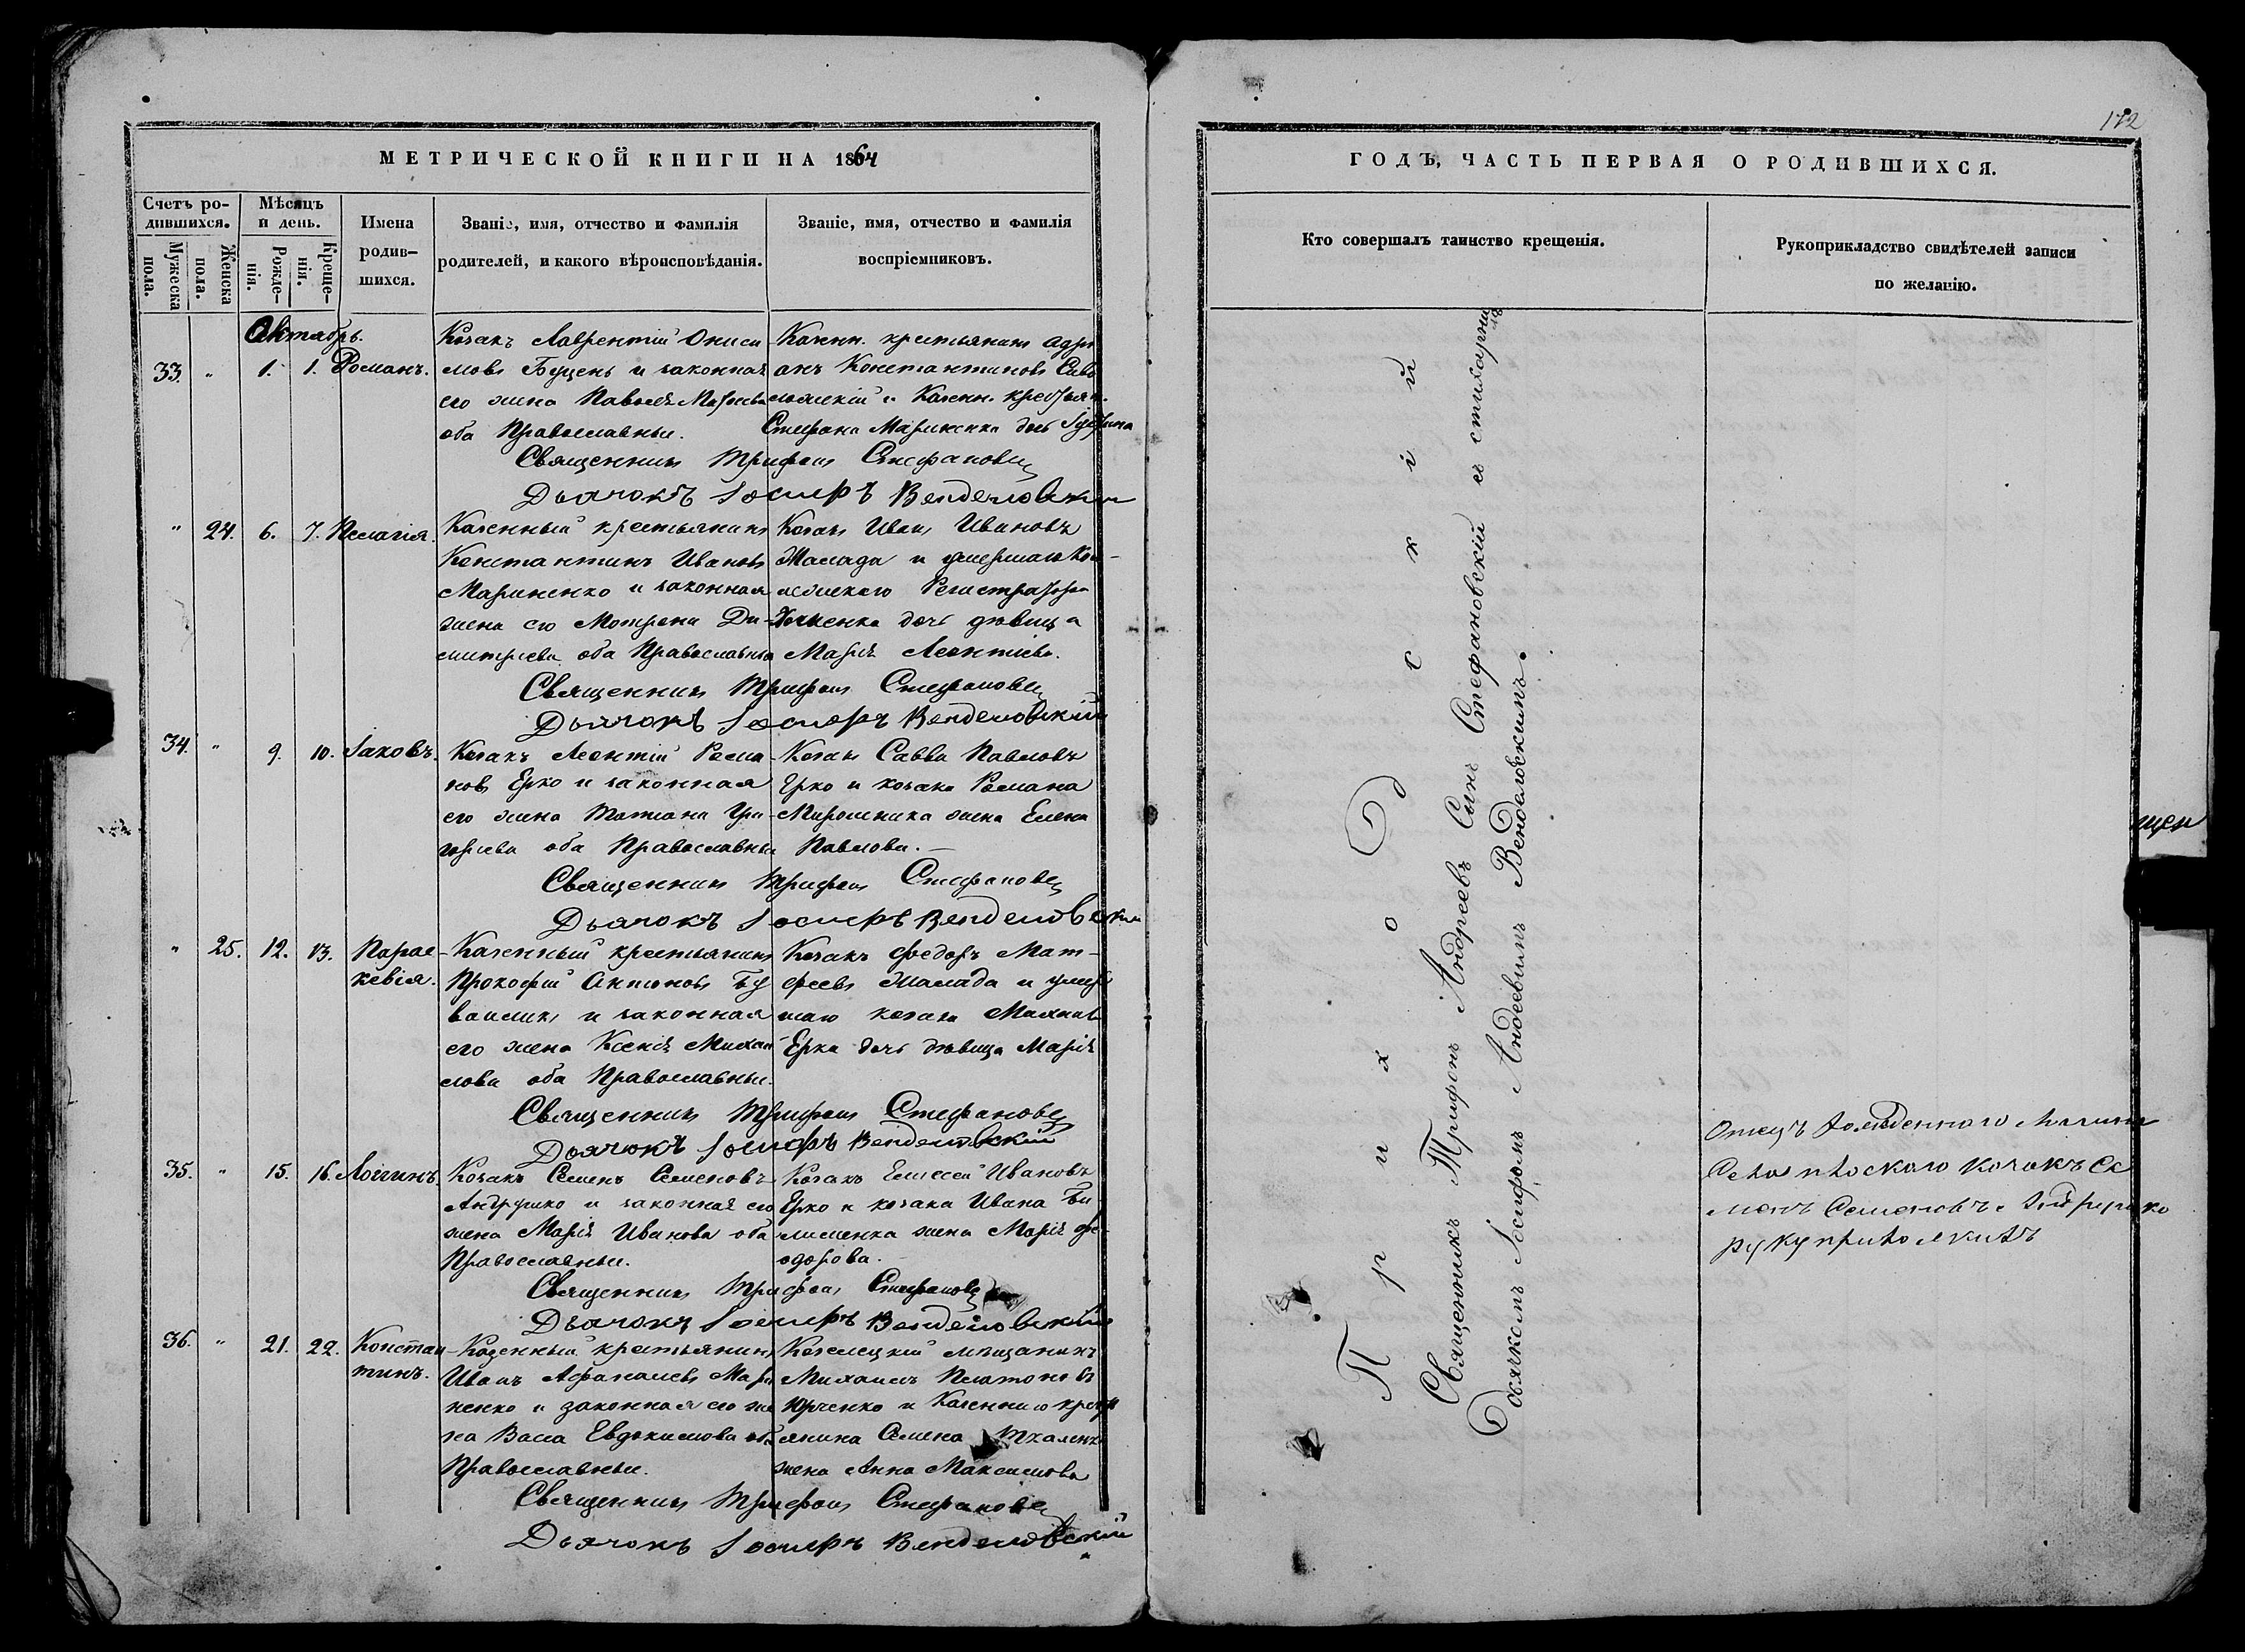 МЕТРИЧЕСКОЙ КНИГИ НА 1864
Счетъ родившихся.
Мужеска пола.
Женска пола.
Мѣсяцъ и день.
Рожденія.
Крещенія.
Имена родив-
шихся.
Званіе, имя, отчество и фамилія
родителей, и какого вѣроисповѣданія.
Званіе, имя, отчество и фамилія
воспріемниковъ.
Октябрь.
33. " 1. 1. Романъ.
Козакъ ЛаврентійОниси
мовъ Буцень и законная
его жена Павла
оба Православные.
Казен. крестьянинъ Адрі
анъ Константиновъ
и Казен. крестьян.
Стефана Мариненка дочь
Священникъ Трифонъ Стефановск
Дьячокъ Іосифъ Венделовскій
" 24. 6. 7. Пелагія.
Казенный крестьянинъ
Константинъ Ивановъ
Мариненко и законная
жена его Мотрона Ди-
митріева оба Православные
Козакъ Иванъ Ивановъ
Жалада и умершаго Кол-
лежскаго Регистратора
дочь дѣвица
Марія Леонтіева.
Священникъ Трифонъ Стефановск
Дьячокъ Іосифъ Венделовскій
34. " 9. 10. Іаковъ.
Козакъ Леонтій Рома-
новъ Ерко и законная
его жена Татіана Гри-
горіева оба Православные
Козакъ Савва Павловъ
Ерко и козака Романа
Мирошника жена Елена
Павлова.
Священникъ Трифонъ Стефановск
Дьячокъ Іосифъ Венделовскій
" 25. 12. 13. Парас-
кевія.
Казенный крестьянинъ
Прокофій Антоновъ Бу
и законная
его жена Ксенія Михаи
лова оба Православные.
Козакъ Федоръ Мат-
феевъ Жалада и умер
шаго козака Михаила
Ерка дочь дѣвица Марія
Священникъ Трифонъ Стефановск
Дьячокъ Іосифъ Венделовскій
35. " 15. 16. Логгинъ.
Козакъ Семенъ Семеновъ
Андрушко и законная его
жена Марія Иванова оба
Православные.
Козакъ Елисей Ивановъ
Ерко и козака Ивана Би-
лименка жена Марія Фе-
одорова.
Священникъ Трифонъ Стефановск
Дьячокъ Іосифъ Венделовскій
36. " 21. 22. Констан
тинъ.
Казенный крестьянинъ
Иванъ Афанасіевъ Мари
ненко и законная его же
на Васса Евдокимова оба
Православные.
Козелецкій мѣщанинъ
Михаилъ Платоновъ
Юрченко и Казеннаго крест
янина Семена Ткаленка
жена Анна Максимова
Священникъ Трифонъ Стефановск
Дьячокъ Іосифъ Венделовскій
172
ГОДЪ, ЧАСТЬ ПЕРВАЯ О РОДИВШИХСЯ.
Кто совершалъ таинство крещенія.
Рукоприкладство свидѣтелей записи
по желанію.
Приходскій
Священникъ Трифонъ Андреевъ Сынъ Стефановскій съ стихарны
Дьячкомъ Іосифомъ Андреевымъ Венделовскимъ.
Отецъ
козакъ Се
менъ Семеновъ Андрушко
руку приложилъ
щен